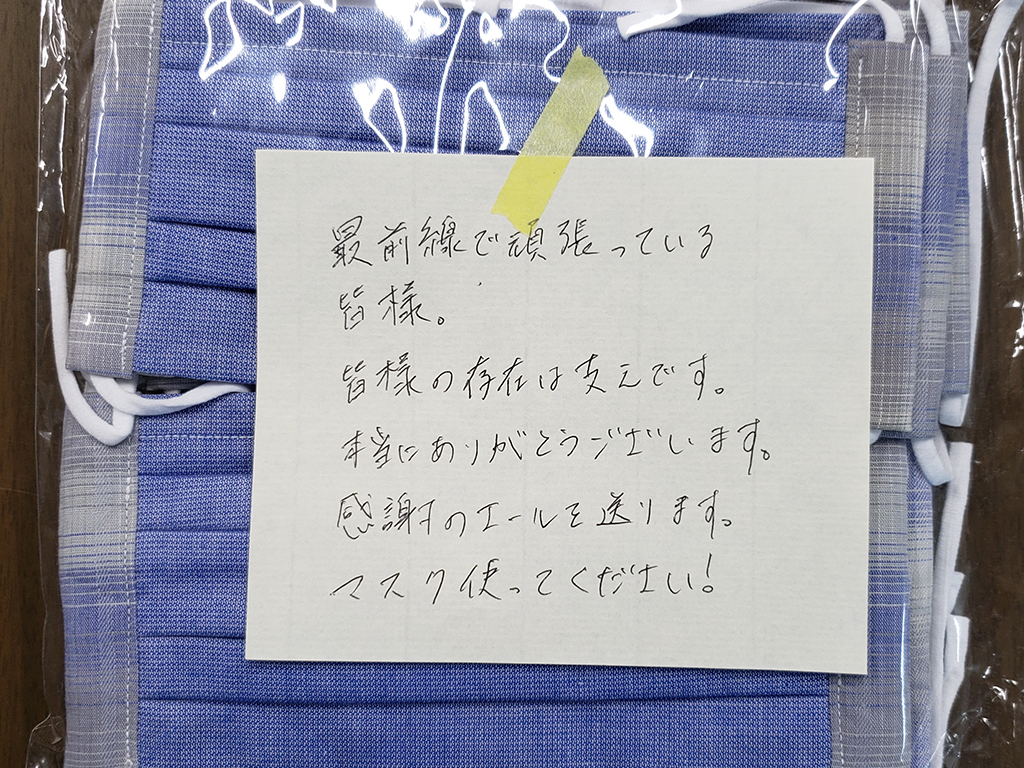 最前線で頑張っている
皆様。
皆様の存在は支えです。
本当にありがとうございます。
感謝のエールを送ります。
マスク使ってください!